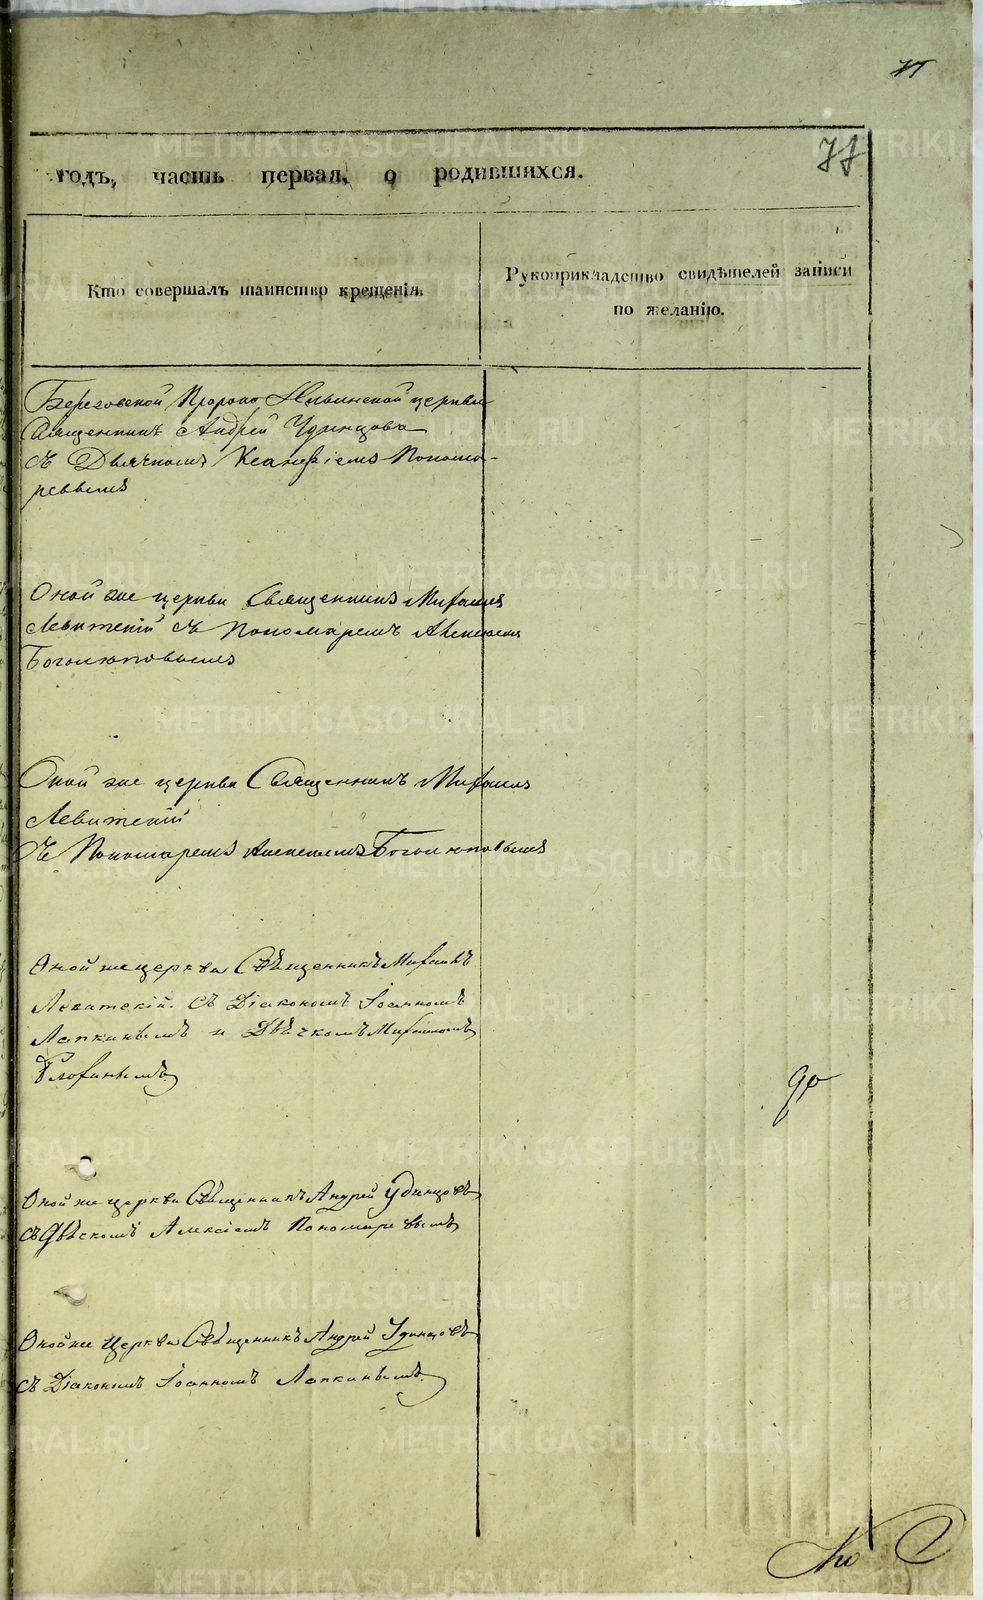 77
годъ, часть первая, о родившихся.
Кто совершалъ таинство крещенія.
Рукоприкладство свидѣтелей записи
по желанію.
Березовской Пророко Ильинской церкви
Священникъ Андрей Удинцовъ
съ Дьячкомъ Пономо-
ревымъ
Оной же церкви Священникъ Михаилъ
Левитскій съ Пономаремъ Алексѣемъ
Боголюповымъ
Оной же церкви Священникъ Михаилъ
Левитскій
съ Пономаремъ Алексѣемъ Боголюповымъ
Оной же церкви Священникъ Михаилъ
Левитскій. съ Діакономъ Іоанномъ
Лапкинымъ и Дьячкомъ Михаиломъ
Оной же церкви Священникъ Андрей Удинцовъ
съ Дьячкомъ Алексіемъ Пономаревымъ
Оной же Церкви Священникъ Андрей Удинцовъ
съ Діакономъ Іоанномъ Лапкинымъ
METRIKI.GASO-URAL.RU